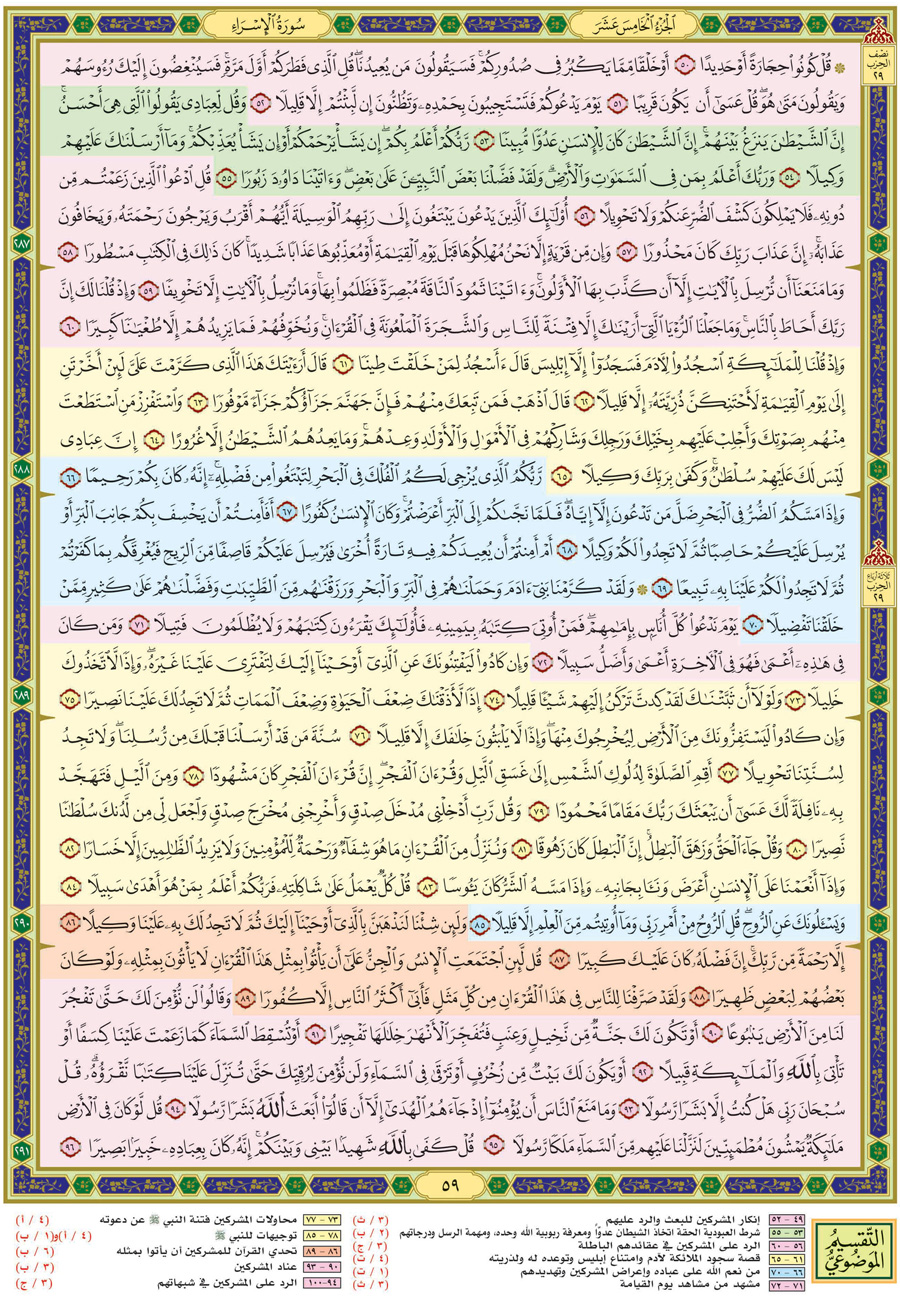 الجُزْءُ الخَامِسَ عَشَرَ
سُورَةُ الإِسْرَاءِ
نِصْفُ الحِزْبِ ٢٩
۞ قُلْ كُونُوا۟ حِجَارَةً أَوْ حَدِيدًا ٥٠ أَوْ خَلْقًا مِّمَّا يَكْبُرُ فِى صُدُورِكُمْ ۚ فَسَيَقُولُونَ مَن يُعِيدُنَا ۖ قُلِ ٱلَّذِى فَطَرَكُمْ أَوَّلَ مَرَّةٍ ۚ فَسَيُنْغِضُونَ إِلَيْكَ رُءُوسَهُمْ
وَيَقُولُونَ مَتَىٰ هُوَ ۖ قُلْ عَسَىٰٓ أَن يَكُونَ قَرِيبًا ٥١ يَوْمَ يَدْعُوكُمْ فَتَسْتَجِيبُونَ بِحَمْدِهِۦ وَتَظُنُّونَ إِن لَّبِثْتُمْ إِلَّا قَلِيلًا ٥٢ وَقُل لِّعِبَادِى يَقُولُوا۟ ٱلَّتِى هِىَ أَحْسَنُ ۚ
إِنَّ ٱلشَّيْطَٰنَ يَنزَغُ بَيْنَهُمْ ۚ إِنَّ ٱلشَّيْطَٰنَ كَانَ لِلْإِنسَٰنِ عَدُوًّا مُّبِينًا ٥٣ رَّبُّكُمْ أَعْلَمُ بِكُمْ ۖ إِن يَشَأْ يَرْحَمْكُمْ أَوْ إِن يَشَأْ يُعَذِّبْكُمْ ۚ وَمَآ أَرْسَلْنَٰكَ عَلَيْهِمْ
وَكِيلًا ٥٤ وَرَبُّكَ أَعْلَمُ بِمَن فِى ٱلسَّمَٰوَٰتِ وَٱلْأَرْضِ ۗ وَلَقَدْ فَضَّلْنَا بَعْضَ ٱلنَّبِيِّـۧنَ عَلَىٰ بَعْضٍ ۖ وَءَاتَيْنَا دَاوُۥدَ زَبُورًا ٥٥ قُلِ ٱدْعُوا۟ ٱلَّذِينَ زَعَمْتُم مِّن
دُونِهِۦ فَلَا يَمْلِكُونَ كَشْفَ ٱلضُّرِّ عَنكُمْ وَلَا تَحْوِيلًا ٥٦ أُو۟لَٰٓئِكَ ٱلَّذِينَ يَدْعُونَ يَبْتَغُونَ إِلَىٰ رَبِّهِمُ ٱلْوَسِيلَةَ أَيُّهُمْ أَقْرَبُ وَيَرْجُونَ رَحْمَتَهُۥ وَيَخَافُونَ
عَذَابَهُۥٓ ۚ إِنَّ عَذَابَ رَبِّكَ كَانَ مَحْذُورًا ٥٧ وَإِن مِّن قَرْيَةٍ إِلَّا نَحْنُ مُهْلِكُوهَا قَبْلَ يَوْمِ ٱلْقِيَٰمَةِ أَوْ مُعَذِّبُوهَا عَذَابًا شَدِيدًا ۚ كَانَ ذَٰلِكَ فِى ٱلْكِتَٰبِ مَسْطُورًا ٥٨
٢٨٧
وَمَا مَنَعَنَآ أَن نُّرْسِلَ بِٱلْءَايَٰتِ إِلَّآ أَن كَذَّبَ بِهَا ٱلْأَوَّلُونَ ۚ وَءَاتَيْنَا ثَمُودَ ٱلنَّاقَةَ مُبْصِرَةً فَظَلَمُوا۟ بِهَا ۚ وَمَا نُرْسِلُ بِٱلْءَايَٰتِ إِلَّا تَخْوِيفًا ٥٩ وَإِذْ قُلْنَا لَكَ إِنَّ
رَبَّكَ أَحَاطَ بِٱلنَّاسِ ۚ وَمَا جَعَلْنَا ٱلرُّءْيَا ٱلَّتِىٓ أَرَيْنَٰكَ إِلَّا فِتْنَةً لِّلنَّاسِ وَٱلشَّجَرَةَ ٱلْمَلْعُونَةَ فِى ٱلْقُرْءَانِ ۚ وَنُخَوِّفُهُمْ فَمَا يَزِيدُهُمْ إِلَّا طُغْيَٰنًا كَبِيرًا ٦٠
وَإِذْ قُلْنَا لِلْمَلَٰٓئِكَةِ ٱسْجُدُوا۟ لِءَادَمَ فَسَجَدُوٓا۟ إِلَّآ إِبْلِيسَ قَالَ ءَأَسْجُدُ لِمَنْ خَلَقْتَ طِينًا ٦١ قَالَ أَرَءَيْتَكَ هَٰذَا ٱلَّذِى كَرَّمْتَ عَلَىَّ لَئِنْ أَخَّرْتَنِ
إِلَىٰ يَوْمِ ٱلْقِيَٰمَةِ لَأَحْتَنِكَنَّ ذُرِّيَّتَهُۥٓ إِلَّا قَلِيلًا ٦٢ قَالَ ٱذْهَبْ فَمَن تَبِعَكَ مِنْهُمْ فَإِنَّ جَهَنَّمَ جَزَآؤُكُمْ جَزَآءً مَّوْفُورًا ٦٣ وَٱسْتَفْزِزْ مَنِ ٱسْتَطَعْتَ
مِنْهُم بِصَوْتِكَ وَأَجْلِبْ عَلَيْهِم بِخَيْلِكَ وَرَجِلِكَ وَشَارِكْهُمْ فِى ٱلْأَمْوَٰلِ وَٱلْأَوْلَٰدِ وَعِدْهُمْ ۚ وَمَا يَعِدُهُمُ ٱلشَّيْطَٰنُ إِلَّا غُرُورًا ٦٤ إِنَّ عِبَادِى
لَيْسَ لَكَ عَلَيْهِمْ سُلْطَٰنٌ ۚ وَكَفَىٰ بِرَبِّكَ وَكِيلًا ٦٥ رَّبُّكُمُ ٱلَّذِى يُزْجِى لَكُمُ ٱلْفُلْكَ فِى ٱلْبَحْرِ لِتَبْتَغُوا۟ مِن فَضْلِهِۦٓ ۚ إِنَّهُۥ كَانَ بِكُمْ رَحِيمًا ٦٦
٢٨٨
وَإِذَا مَسَّكُمُ ٱلضُّرُّ فِى ٱلْبَحْرِ ضَلَّ مَن تَدْعُونَ إِلَّآ إِيَّاهُ ۖ فَلَمَّا نَجَّىٰكُمْ إِلَى ٱلْبَرِّ أَعْرَضْتُمْ ۚ وَكَانَ ٱلْإِنسَٰنُ كَفُورًا ٦٧ أَفَأَمِنتُمْ أَن يَخْسِفَ بِكُمْ جَانِبَ ٱلْبَرِّ أَوْ
يُرْسِلَ عَلَيْكُمْ حَاصِبًا ثُمَّ لَا تَجِدُوا۟ لَكُمْ وَكِيلًا ٦٨ أَمْ أَمِنتُمْ أَن يُعِيدَكُمْ فِيهِ تَارَةً أُخْرَىٰ فَيُرْسِلَ عَلَيْكُمْ قَاصِفًا مِّنَ ٱلرِّيحِ فَيُغْرِقَكُم بِمَا كَفَرْتُمْ
ثُمَّ لَا تَجِدُوا۟ لَكُمْ عَلَيْنَا بِهِۦ تَبِيعًا ٦٩ ۞ وَلَقَدْ كَرَّمْنَا بَنِىٓ ءَادَمَ وَحَمَلْنَٰهُمْ فِى ٱلْبَرِّ وَٱلْبَحْرِ وَرَزَقْنَٰهُم مِّنَ ٱلطَّيِّبَٰتِ وَفَضَّلْنَٰهُمْ عَلَىٰ كَثِيرٍ مِّمَّنْ
ثَلَاثَةُ أَرْبَاعِ الحِزْبِ ٢٩
خَلَقْنَا تَفْضِيلًا ٧٠ يَوْمَ نَدْعُوا۟ كُلَّ أُنَاسٍۭ بِإِمَٰمِهِمْ ۖ فَمَنْ أُوتِىَ كِتَٰبَهُۥ بِيَمِينِهِۦ فَأُو۟لَٰٓئِكَ يَقْرَءُونَ كِتَٰبَهُمْ وَلَا يُظْلَمُونَ فَتِيلًا ٧١ وَمَن كَانَ
فِى هَٰذِهِۦٓ أَعْمَىٰ فَهُوَ فِى ٱلْءَاخِرَةِ أَعْمَىٰ وَأَضَلُّ سَبِيلًا ٧٢ وَإِن كَادُوا۟ لَيَفْتِنُونَكَ عَنِ ٱلَّذِىٓ أَوْحَيْنَآ إِلَيْكَ لِتَفْتَرِىَ عَلَيْنَا غَيْرَهُۥ ۖ وَإِذًا لَّٱتَّخَذُوكَ
خَلِيلًا ٧٣ وَلَوْلَآ أَن ثَبَّتْنَٰكَ لَقَدْ كِدتَّ تَرْكَنُ إِلَيْهِمْ شَيْـًٔا قَلِيلًا ٧٤ إِذًا لَّأَذَقْنَٰكَ ضِعْفَ ٱلْحَيَوٰةِ وَضِعْفَ ٱلْمَمَاتِ ثُمَّ لَا تَجِدُ لَكَ عَلَيْنَا نَصِيرًا ٧٥
٢٨٩
وَإِن كَادُوا۟ لَيَسْتَفِزُّونَكَ مِنَ ٱلْأَرْضِ لِيُخْرِجُوكَ مِنْهَا ۖ وَإِذًا لَّا يَلْبَثُونَ خِلَٰفَكَ إِلَّا قَلِيلًا ٧٦ سُنَّةَ مَن قَدْ أَرْسَلْنَا قَبْلَكَ مِن رُّسُلِنَا ۖ وَلَا تَجِدُ
لِسُنَّتِنَا تَحْوِيلًا ٧٧ أَقِمِ ٱلصَّلَوٰةَ لِدُلُوكِ ٱلشَّمْسِ إِلَىٰ غَسَقِ ٱلَّيْلِ وَقُرْءَانَ ٱلْفَجْرِ ۖ إِنَّ قُرْءَانَ ٱلْفَجْرِ كَانَ مَشْهُودًا ٧٨ وَمِنَ ٱلَّيْلِ فَتَهَجَّدْ
بِهِۦ نَافِلَةً لَّكَ عَسَىٰٓ أَن يَبْعَثَكَ رَبُّكَ مَقَامًا مَّحْمُودًا ٧٩ وَقُل رَّبِّ أَدْخِلْنِى مُدْخَلَ صِدْقٍ وَأَخْرِجْنِى مُخْرَجَ صِدْقٍ وَٱجْعَل لِّى مِن لَّدُنكَ سُلْطَٰنًا
نَّصِيرًا ٨٠ وَقُلْ جَآءَ ٱلْحَقُّ وَزَهَقَ ٱلْبَٰطِلُ ۚ إِنَّ ٱلْبَٰطِلَ كَانَ زَهُوقًا ٨١ وَنُنَزِّلُ مِنَ ٱلْقُرْءَانِ مَا هُوَ شِفَآءٌ وَرَحْمَةٌ لِّلْمُؤْمِنِينَ ۙ وَلَا يَزِيدُ ٱلظَّٰلِمِينَ إِلَّا خَسَارًا ٨٢
وَإِذَآ أَنْعَمْنَا عَلَى ٱلْإِنسَٰنِ أَعْرَضَ وَنَـَٔا بِجَانِبِهِۦ ۖ وَإِذَا مَسَّهُ ٱلشَّرُّ كَانَ يَـُٔوسًا ٨٣ قُلْ كُلٌّ يَعْمَلُ عَلَىٰ شَاكِلَتِهِۦ فَرَبُّكُمْ أَعْلَمُ بِمَنْ هُوَ أَهْدَىٰ سَبِيلًا ٨٤
وَيَسْـَٔلُونَكَ عَنِ ٱلرُّوحِ ۖ قُلِ ٱلرُّوحُ مِنْ أَمْرِ رَبِّى وَمَآ أُوتِيتُم مِّنَ ٱلْعِلْمِ إِلَّا قَلِيلًا ٨٥ وَلَئِن شِئْنَا لَنَذْهَبَنَّ بِٱلَّذِىٓ أَوْحَيْنَآ إِلَيْكَ ثُمَّ لَا تَجِدُ لَكَ بِهِۦ عَلَيْنَا وَكِيلًا ٨٦
٢٩٠
إِلَّا رَحْمَةً مِّن رَّبِّكَ ۚ إِنَّ فَضْلَهُۥ كَانَ عَلَيْكَ كَبِيرًا ٨٧ قُل لَّئِنِ ٱجْتَمَعَتِ ٱلْإِنسُ وَٱلْجِنُّ عَلَىٰٓ أَن يَأْتُوا۟ بِمِثْلِ هَٰذَا ٱلْقُرْءَانِ لَا يَأْتُونَ بِمِثْلِهِۦ وَلَوْ كَانَ
بَعْضُهُمْ لِبَعْضٍ ظَهِيرًا ٨٨ وَلَقَدْ صَرَّفْنَا لِلنَّاسِ فِى هَٰذَا ٱلْقُرْءَانِ مِن كُلِّ مَثَلٍ فَأَبَىٰٓ أَكْثَرُ ٱلنَّاسِ إِلَّا كُفُورًا ٨٩ وَقَالُوا۟ لَن نُّؤْمِنَ لَكَ حَتَّىٰ تَفْجُرَ
لَنَا مِنَ ٱلْأَرْضِ يَنۢبُوعًا ٩٠ أَوْ تَكُونَ لَكَ جَنَّةٌ مِّن نَّخِيلٍ وَعِنَبٍ فَتُفَجِّرَ ٱلْأَنْهَٰرَ خِلَٰلَهَا تَفْجِيرًا ٩١ أَوْ تُسْقِطَ ٱلسَّمَآءَ كَمَا زَعَمْتَ عَلَيْنَا كِسَفًا أَوْ
تَأْتِىَ بِٱللَّهِ وَٱلْمَلَٰٓئِكَةِ قَبِيلًا ٩٢ أَوْ يَكُونَ لَكَ بَيْتٌ مِّن زُخْرُفٍ أَوْ تَرْقَىٰ فِى ٱلسَّمَآءِ وَلَن نُّؤْمِنَ لِرُقِيِّكَ حَتَّىٰ تُنَزِّلَ عَلَيْنَا كِتَٰبًا نَّقْرَؤُهُۥ ۗ قُلْ
سُبْحَانَ رَبِّى هَلْ كُنتُ إِلَّا بَشَرًا رَّسُولًا ٩٣ وَمَا مَنَعَ ٱلنَّاسَ أَن يُؤْمِنُوٓا۟ إِذْ جَآءَهُمُ ٱلْهُدَىٰٓ إِلَّآ أَن قَالُوٓا۟ أَبَعَثَ ٱللَّهُ بَشَرًا رَّسُولًا ٩٤ قُل لَّوْ كَانَ فِى ٱلْأَرْضِ
مَلَٰٓئِكَةٌ يَمْشُونَ مُطْمَئِنِّينَ لَنَزَّلْنَا عَلَيْهِم مِّنَ ٱلسَّمَآءِ مَلَكًا رَّسُولًا ٩٥ قُلْ كَفَىٰ بِٱللَّهِ شَهِيدًۢا بَيْنِى وَبَيْنَكُمْ ۚ إِنَّهُۥ كَانَ بِعِبَادِهِۦ خَبِيرًۢا بَصِيرًا ٩٦
٢٩١
٥٩
التَّقْسِيمُ المَوْضُوعِيُّ
٤٩ - ٥٢ إنكار المشركين للبعث والرد عليهم (٣ / ث)
٥٣ - ٥٥ شرط العبودية الحقة اتخاذ الشيطان عدوًّا ومعرفة ربوبية الله وحده، ومهمة الرسل ودرجاتهم (٢ / ب)
٥٦ - ٦٠ الرد على المشركين في عقائدهم الباطلة (٣ / ج)
٦١ - ٦٥ قصة سجود الملائكة لآدم وامتناع إبليس وتوعده له ولذريته (٤ / ث)
٦٦ - ٧٠ من نعم الله على عباده وإعراض المشركين وتهديدهم (١ / ث)
٧١ - ٧٢ مشهد من مشاهد يوم القيامة (٣ / ث)
٧٣ - ٧٧ محاولات المشركين فتنة النبي ﷺ عن دعوته (٤ / أ)
٧٨ - ٨٥ توجيهات للنبي ﷺ (٤ / أ)و(١ / ب)
٨٦ - ٨٩ تحدي القرآن للمشركين أن يأتوا بمثله (٦ / ب)
٩٠ - ٩٣ عناد المشركين (٣ / ب)
٩٤-١٠٠ الرد على المشركين في شبهاتهم (٣ / ج)